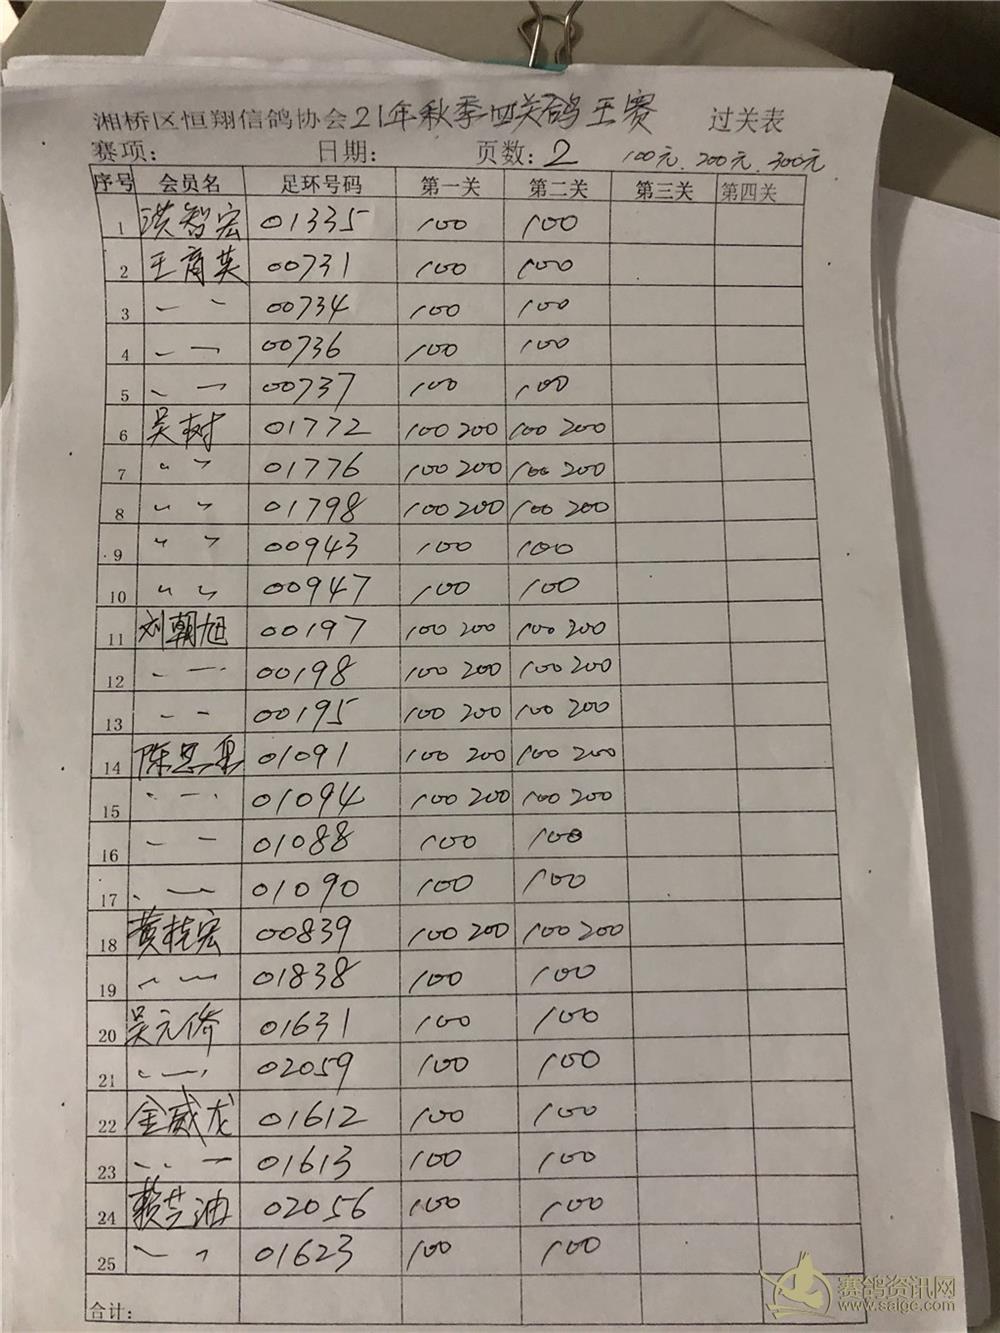 湘桥区恒翔信鸽协会21年秋季四关鸽王赛 过关表
赛项: 日期: 页数: 2 100元.200元.300元
序号 会员名 足环号码 第一关 第二关 第三关 第四关
1 洪智宏 01335 100 100
2 王育英 00731 100 100
3 〃 00734 100 100
4 〃 00736 100 100
5 〃 00737 100 100
6 吴树 01772 100 200 100 200
7 〃 01776 100 200 100 200
8 〃 01798 100 200 100 200
9 〃 00943 100 100
10 〃 00947 100 100
11 刘朝旭 00197 100 200 100 200
12 〃 00198 100 200 100 200
13 〃 00195 100 200 100 200
14 陈思 01091 100 200 100 200
15 〃 01094 100 200 100 200
16 〃 01088 100 100
17 〃 01090 100 100
18 黄桂宏 00839 100 200 100 200
19 〃 01838 100 100
20 吴元侨 01631 100 100
21 〃 02059 100 100
22 金威龙 01612 100 100
23 〃 01613 100 100
24 赖芝油 02056 100 100
25 〃 01623 100 100
合计:
赛鸽资讯网
www.saige.com